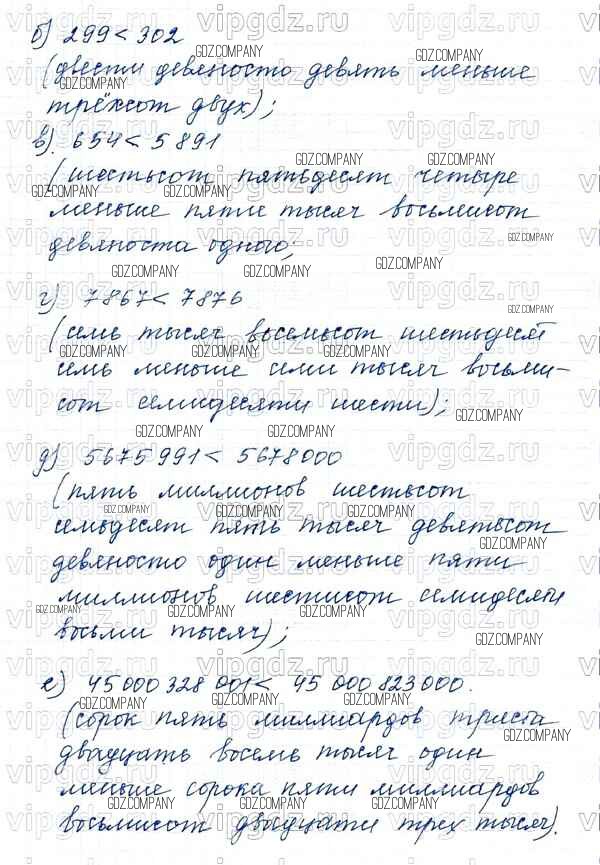 б) 299 < 302
(двести девяносто девять меньше
трёхсот двух);
в). 654 < 5 891
(шестьсот пятьдесят четыре
меньше пяти тысяч восьмисот
девяноста одного;
г) 7867 < 7876
(семь тысяч восемьсот шестьдесят
семь меньше семи тысяч восьми-
сот семидесяти шести);
д) 5675 991 < 5678000
(пять миллионов шестьсот
семьдесят пять тысяч девятьсот
девяносто один меньше пяти
миллионов шестисот семидесяти
восьми тысяч);
е) 45 000 328 001 < 45 000 823 000.
(сорок пять миллиардов триста
двадцать восемь тысяч один
меньше сорока пяти миллиардов
восьмисот двадцати трех тысяч).
vipgdz.ru
GDZ.COMPANY